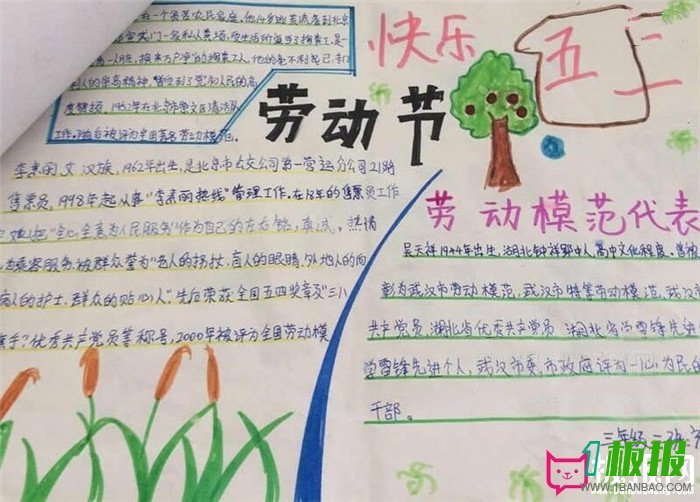 在一个贫苦农民家庭,他14岁逃荒流落到北京
一家私人粪场,受生活的逼迫当了掏粪工,是
人的崇高精神,赞受到了党和人民的高
度赞颂,1962年在北京市崇文区清洁队
工作。随后被评为全国著名劳动模范。
快乐
五
三
劳动节
李素丽,女,汉族,1962年出生,是北京市公交公司第一营运分公司21路
售票员,1998年起从事“李素丽热线”管理工作。在18年的售票员工作
她以“全心全意为人民服务”作为自己的座右铭,真诚、热情
为乘客服务,被群众誉为“老人的拐杖,盲人的眼睛,外地人的向
病人的护士,群众的贴心人”,先后荣获全国五四奖章及“三八
旗手”优秀共产党员等称号,2000年被评为全国劳动模
劳动模范代表
吴天祥1944年出生,湖北钟祥郢中人,高中文化程度。曾被
彰为武汉市劳动模范,武汉市特等劳动模范,武汉市
共产党员,湖北省优秀共产党员,湖北省学雷锋先进
学雷锋先进个人,武汉市委、市政府评为一心为民的
干部。
三年级二班
1板报
WWW.1BANBAO.COM